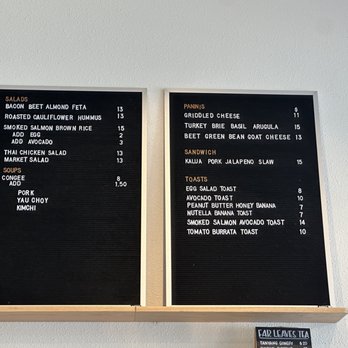 SALADS
BACON BEET ALMOND FETA 13
ROASTED CAULIFLOWER HUMMUS 13
SMOKED SALMON BROWN RICE 15
ADD EGG 2
ADD AVOCADO 3
THAI CHICKEN SALAD 13
MARKET SALAD 13
SOUPS
CONGEE 8
ADD 1.50
PORK
YAU CHOY
KIMCHI
PANINIS
GRIDDLED CHEESE 11
TURKEY BRIE BASIL ARUGULA 15
BEET GREEN BEAN GOAT CHEESE 13
SANDWICH
KALUA PORK JALAPENO SLAW 15
TOASTS
EGG SALAD TOAST 8
AVOCADO TOAST 10
PEANUT BUTTER HONEY BANANA 7
NUTELLA BANANA TOAST 7
SMOKED SALMON AVOCADO TOAST 14
TOMATO BURRATA TOAST 10
FAR LEAVES TEA